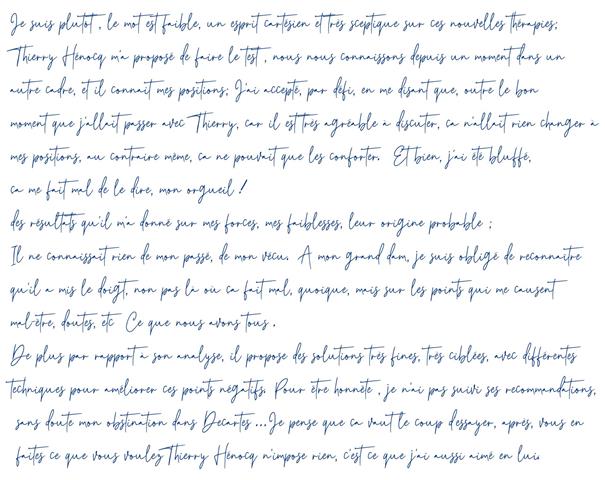 Je suis plutot , le mot est faible, un esprit cartésien et très sceptique sur ces nouvelles thérapies;
Thierry Hénocq m'a proposé de faire le test , nous nous connaissons depuis un moment dans un
autre cadre, et il connait mes positions; J'ai accepté, par défi, en me disant que, outre le bon
moment que j'allait passer avec Thierry, car il est très agréable à discuter, ca n'allait rien changer à
mes positions, au contraire même, ca ne pouvait que les conforter. Et bien, j'ai été bluffé,
ca me fait mal de le dire, mon orgueil !
des résultats qu'il m'a donné sur mes forces, mes faiblesses, leur origine probable ;
Il ne connaissait rien de mon passé, de mon vécu. A mon grand dam, je suis obligé de reconnaitre
qu'il a mis le doigt, non pas là ou ca fait mal, quoique, mais sur les points qui me causent
mal-être, doutes, etc Ce que nous avons tous .
De plus par rapport à son analyse, il propose des solutions très fines, très ciblées, avec différentes
techniques pour améliorer ces points négatifs. Pour être honnête , je n'ai pas suivi ses recommandations,
sans doute mon obstination dans Decartes ...Je pense que ca vaut le coup d'essayer, après, vous en
faites ce que vous voulez Thierry Hénocq n'impose rien, c'est ce que j'ai aussi aimé en lui.